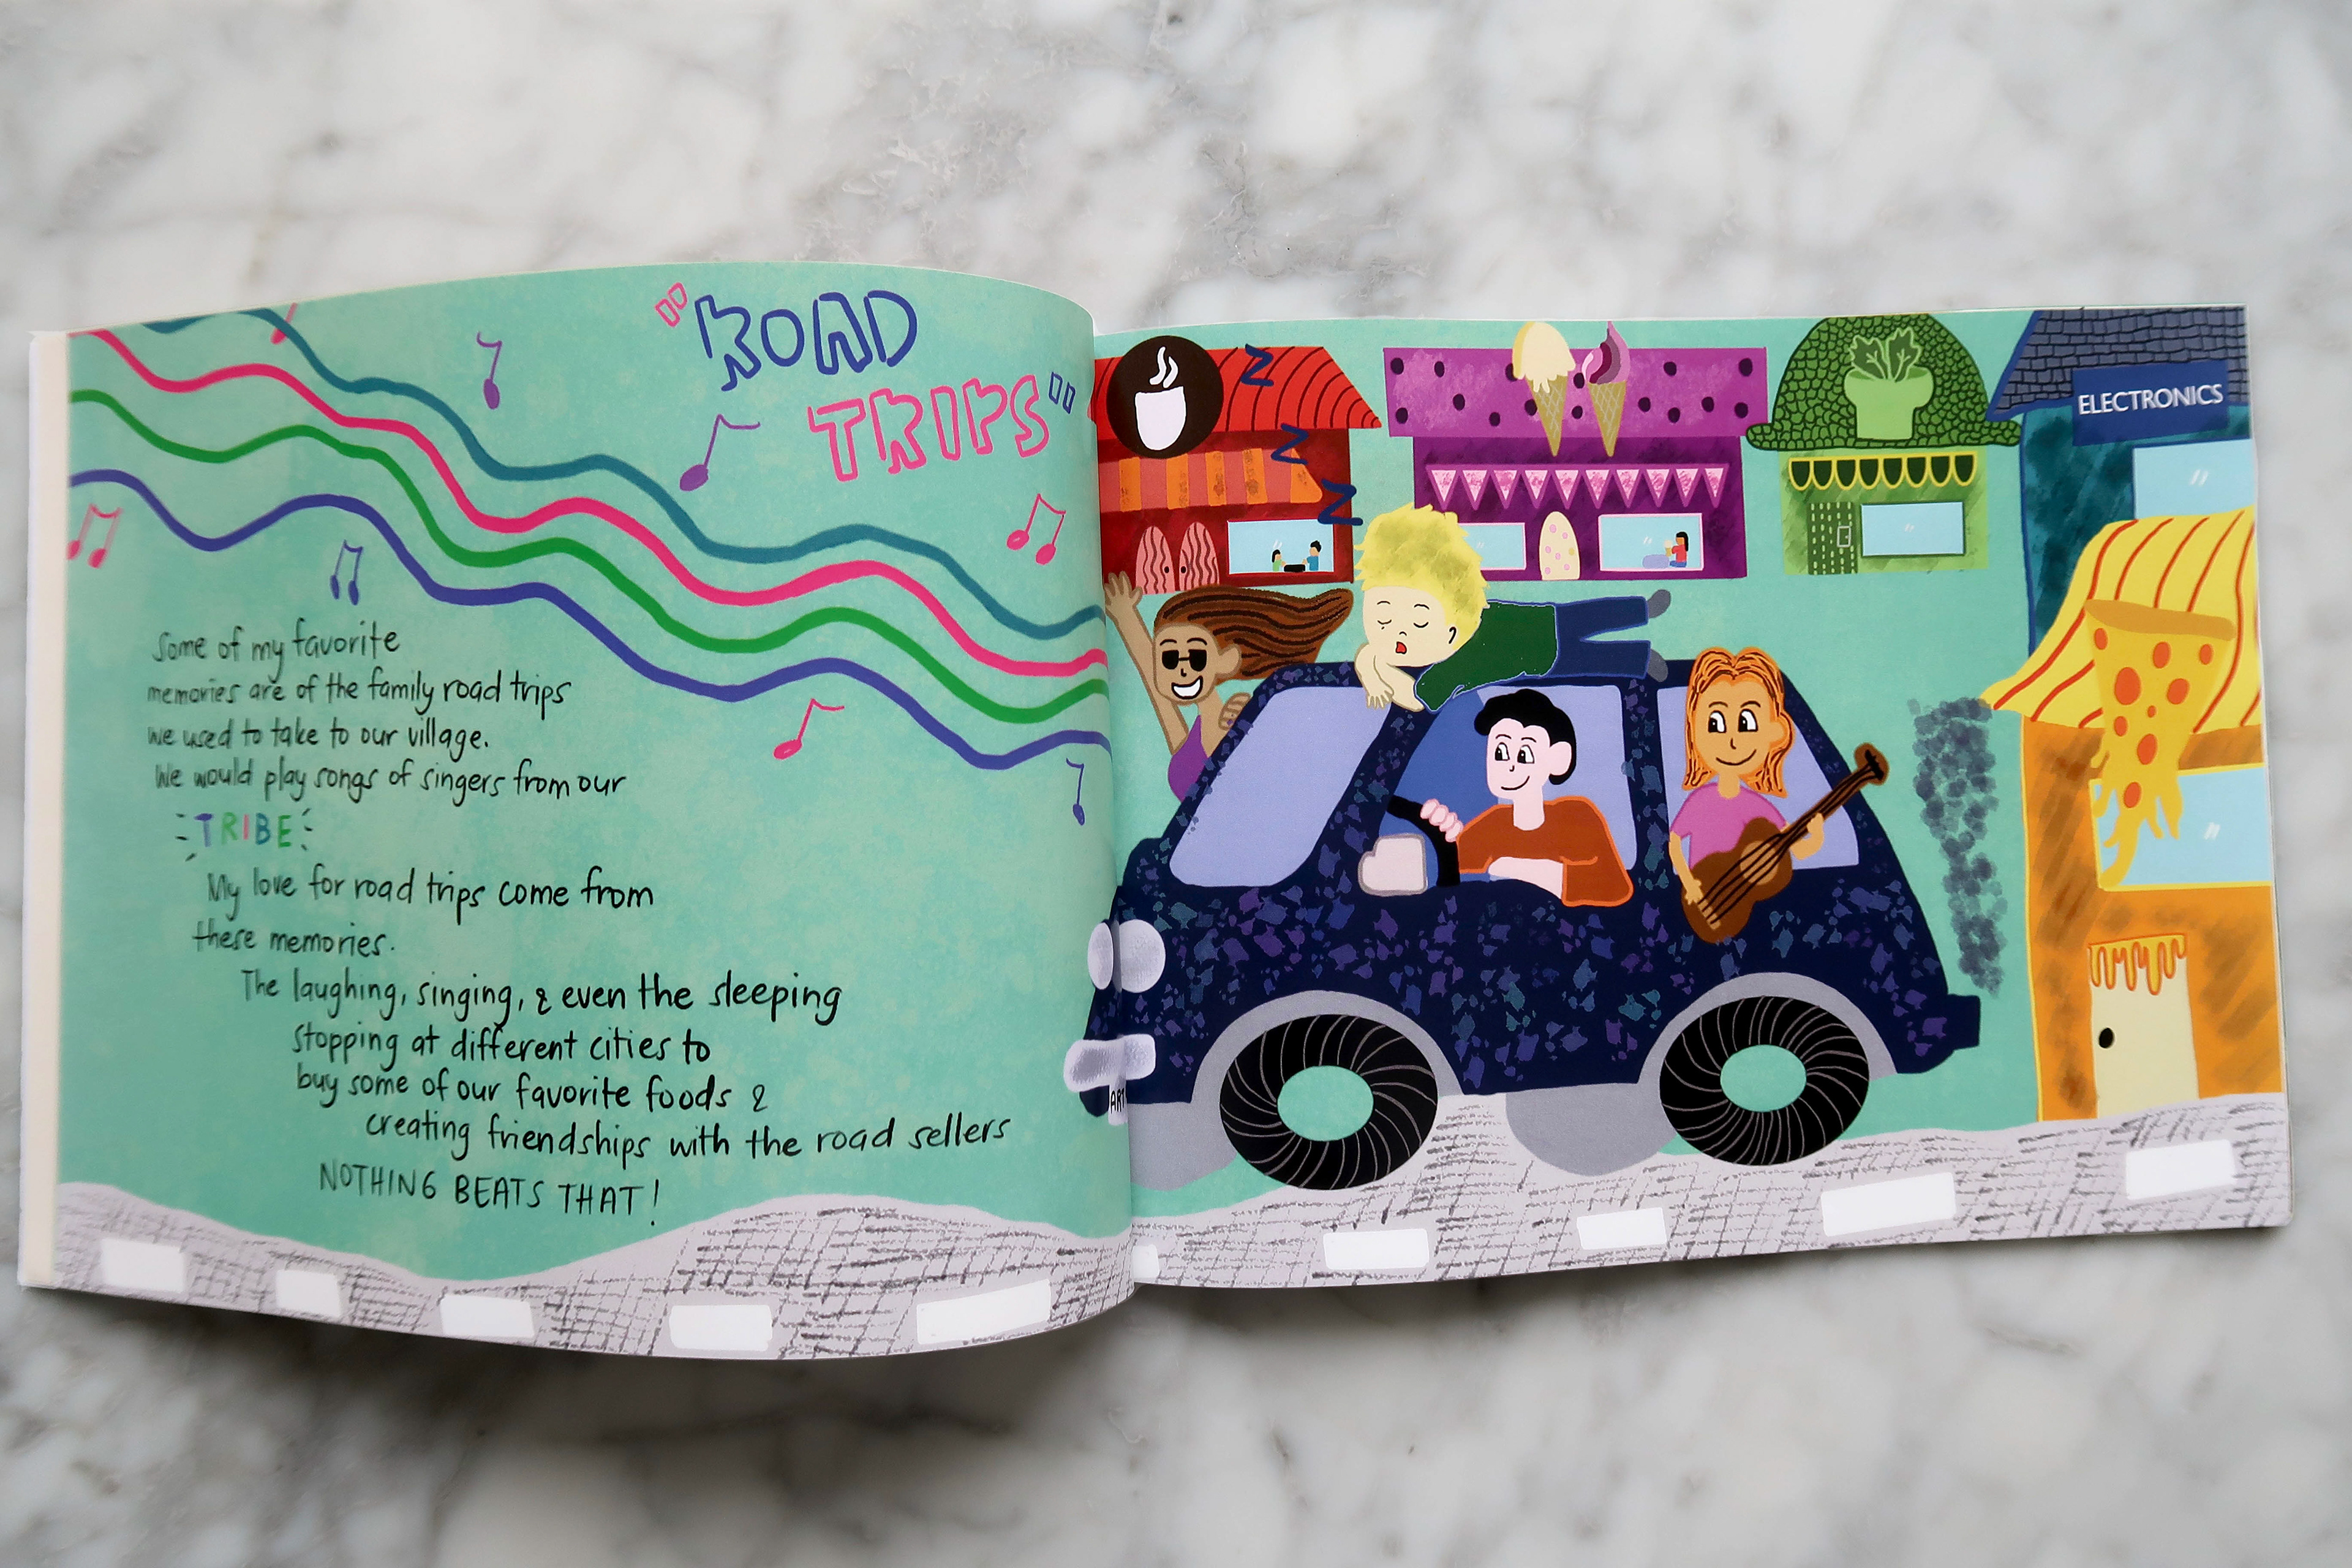 "ROAD
TRIPS"
Some of my favorite
memories are of the family road trips
we used to take to our village.
We would play songs of singers from our
TRIBE
My love for road trips come from
these memories.
The laughing, singing, & even the sleeping
stopping at different cities to
buy some of our favorite foods &
creating friendships with the road sellers
NOTHING BEATS THAT!
Z
Z
Z
ELECTRONICS